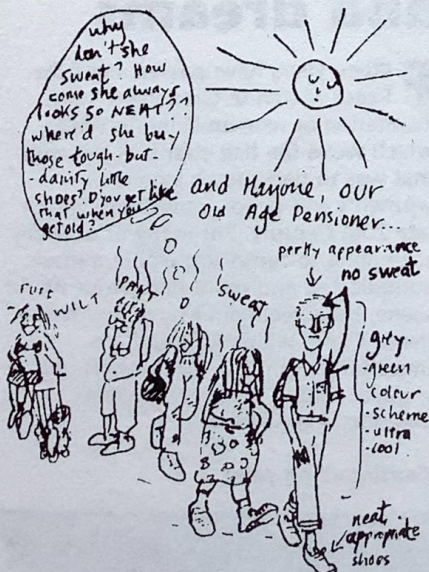 why
don't she
sweat? How
come she always
looks so NEAT??
where'd she buy
those tough-but-
-dainty little
shoes? D'you get like
that when you
get old?
and Marjone, our
Old Age Pensioner...
perky appearance
no sweat
WILT
PANT
Sweat
grey-
-green
colour
-scheme
-ultra
-cool
neat,
appropriate
shoes